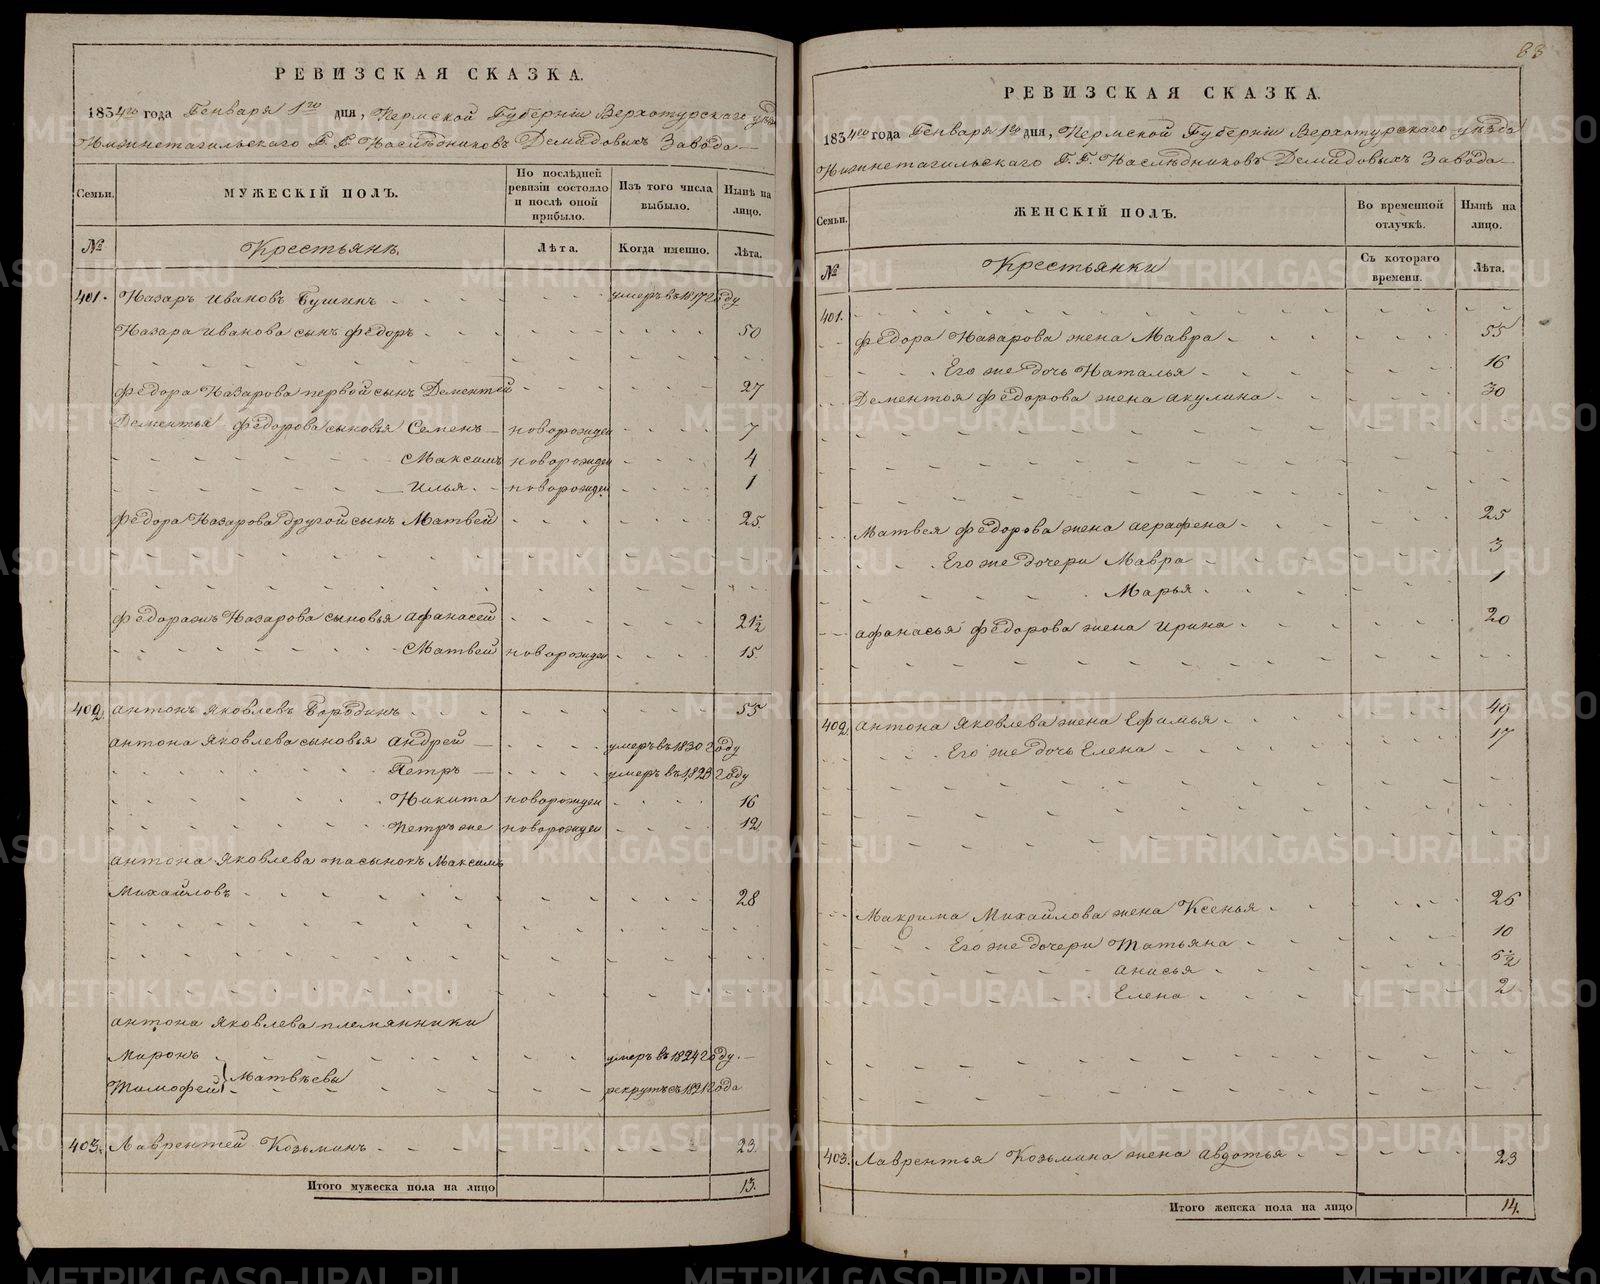 РЕВИЗСКАЯ СКАЗКА.
1834го года Генваря 1го дня, Пермской Губернiи Верхотурскаго уѣзда
Нижнетагильскаго Г. Г. Наслѣдниковъ Демидовыхъ Завода
Семьи. МУЖЕСКIЙ ПОЛЪ. По послѣдней ревизiи состояло и послѣ оной прибыло. Изъ того числа выбыло. Нынѣ на лицо.
№ Крестьянъ. Лѣта. Когда именно. Лѣта.
401. Назаръ Ивановъ Бушинъ умеръ въ 1817 году
Назара Иванова сынъ Федоръ 50
Федора Назарова первой сынъ Дементей 27
Дементья Федорова сыновья Семенъ новорожден 7
Максимъ новорожден 4
Илья новорожден 1
Федора Назарова другой сынъ Матвей 25.
Федоражъ Назарова сыновья Афанасей 21½
Матвей новорожден 15.
402. Антонъ Яковлевъ Бородинъ 55
Антона Яковлева сыновья Андрей умеръ въ 1830 году
Петръ умеръ въ 1823 году
Никита новорожден 16
Петръ же новорожден 12
Антона Яковлева пасынокъ Максимъ
Михайловъ 28
Антона Яковлева племянники
Миронъ умеръ въ 1824 году.
Тимофей } Матвѣевы рекрутъ съ 1821 года
403. Лаврентей Козьминъ 23.
Итого мужеска пола на лицо 13.
83
РЕВИЗСКАЯ СКАЗКА.
1834го года Генваря 1го дня, Пермской Губернiи Верхотурскаго уѣзда
Нижнетагильскаго Г. Г. Наслѣдниковъ Демидовыхъ Завода
Семьи. ЖЕНСКIЙ ПОЛЪ. Во временной отлучкѣ. Нынѣ на лицо.
№ Крестьянки Съ котораго времени. Лѣта.
401.
Федора Назарова жена Мавра 55
Его же дочь Наталья 16
Дементья Федорова жена Акулина 30
Матвея Федорова жена Аграфена 25
Его же дочери Мавра 3
Марья 1
Афанасья Федорова жена Ирина 20
402. Антона Яковлева жена Ефимья 49
Его же дочь Елена 17
Макрима Михайлова жена Ксенья 26
Его же дочери Татьяна 10
Анисья 5½
Елена 2
403. Лаврентья Козьмина жена Авдотья 23
Итого женска пола на лицо 14.
METRIKI.GASO-URAL.RU